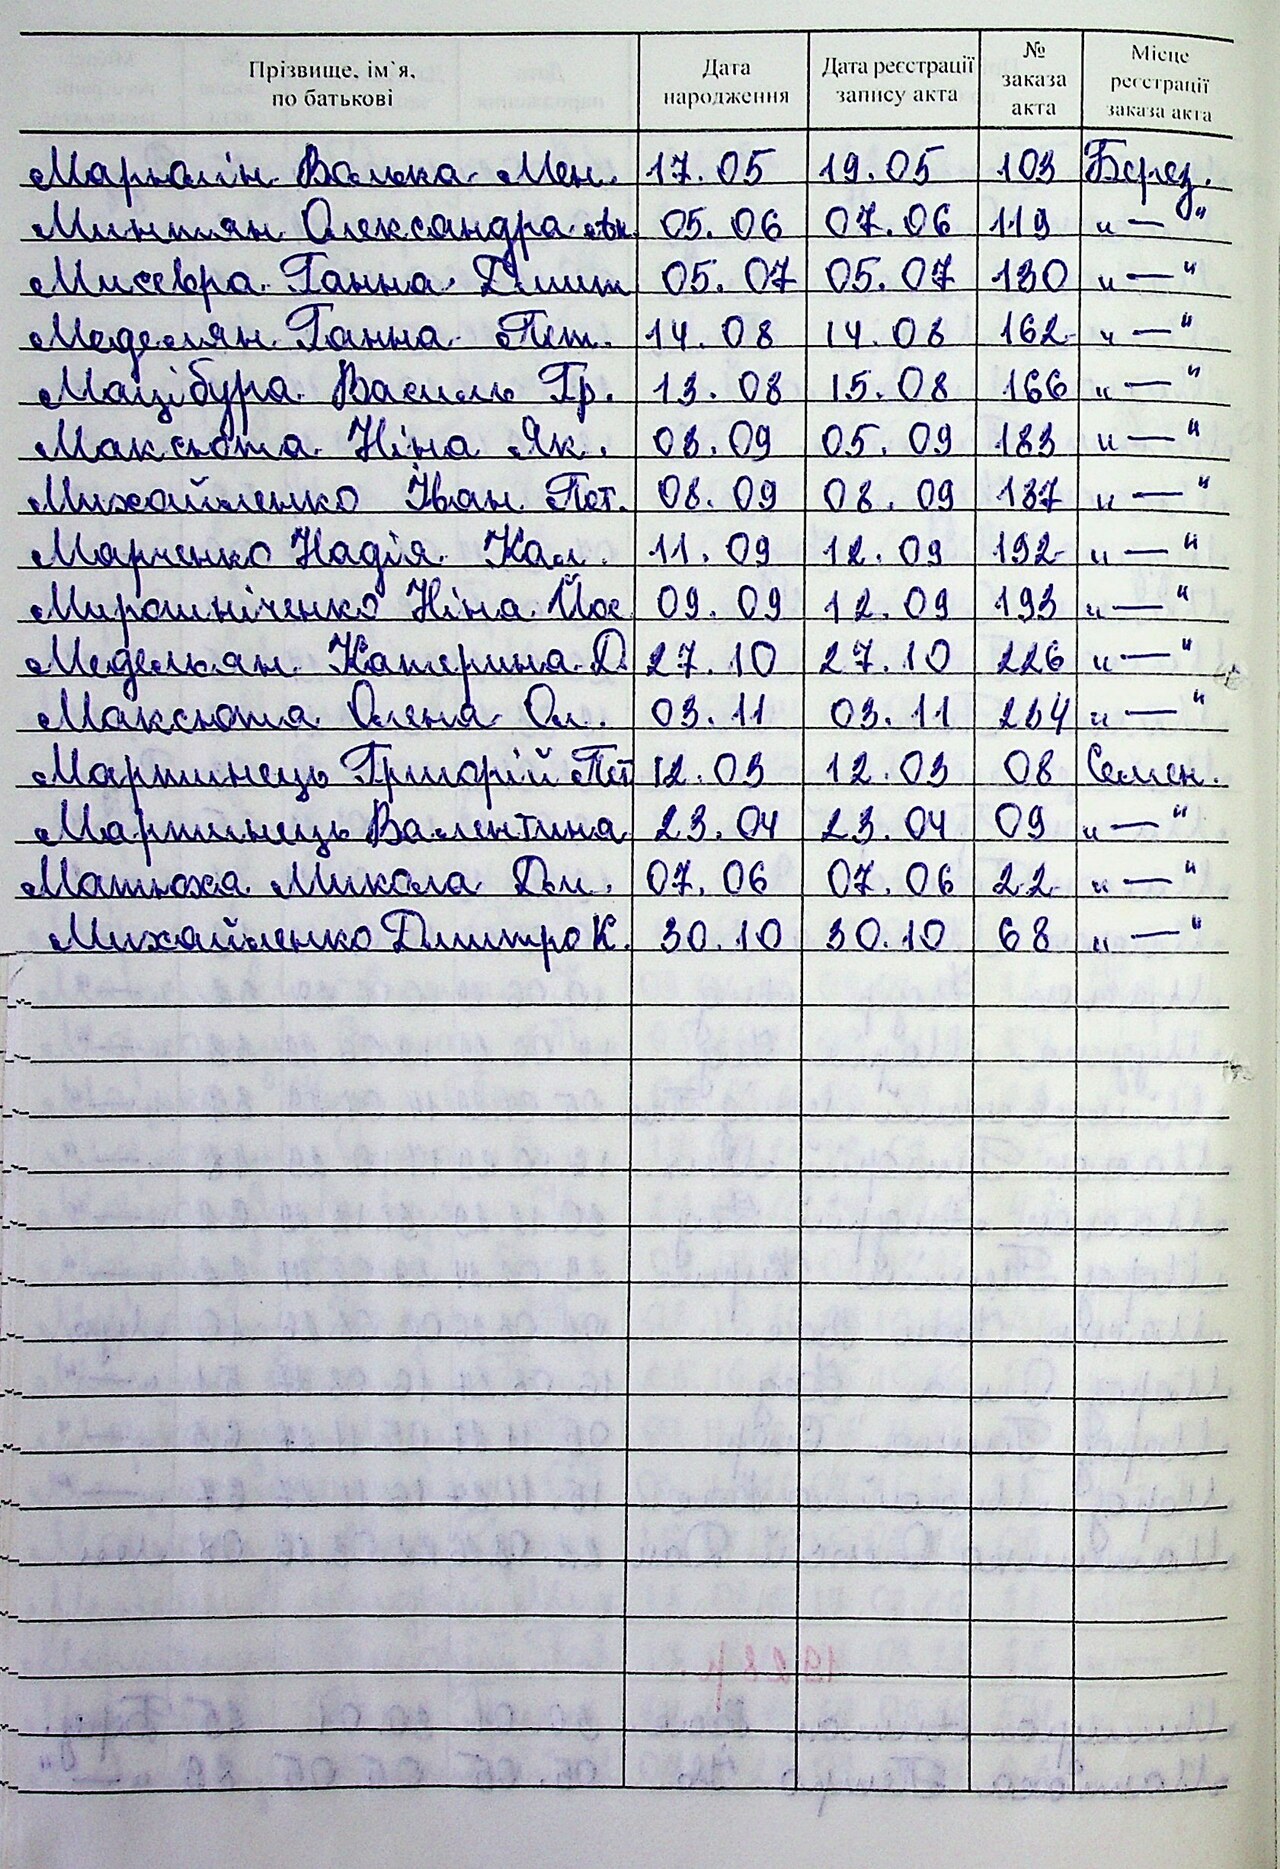 Прізвище, ім`я, по батькові | Дата народження | Дата реєстрації запису акта | № заказа акта | Місце реєстрації заказа акта
Мен. 17.05 19.05 103 Берез.
Олександра 05.06 07.06 119 „—“
Мисевра Ганна Дмит 05.07 05.07 130 „—“
Меделян Ганна Пет. 14.08 14.08 162 „—“
Мацібура Василь Гр. 13.08 15.08 166 „—“
Максюта Ніна Як. 03.09 05.09 183 „—“
Михайленко Іван Пет. 08.09 08.09 187 „—“
Марченко Надія Кал. 11.09 12.09 192 „—“
Мирошніченко Ніна Йос. 09.09 12.09 193 „—“
Меделян Катерина Д. 27.10 27.10 226 „—“
Максюта Олена Ол. 03.11 03.11 234 „—“
Мартинець Григорій Пет 12.03 12.03 08 Семен.
Мартинець Валентина 23.04 23.04 09 „—“
Матюха Микола Дм. 07.06 07.06 22 „—“
Михайленко Дмитро К. 30.10 30.10 68 „—“